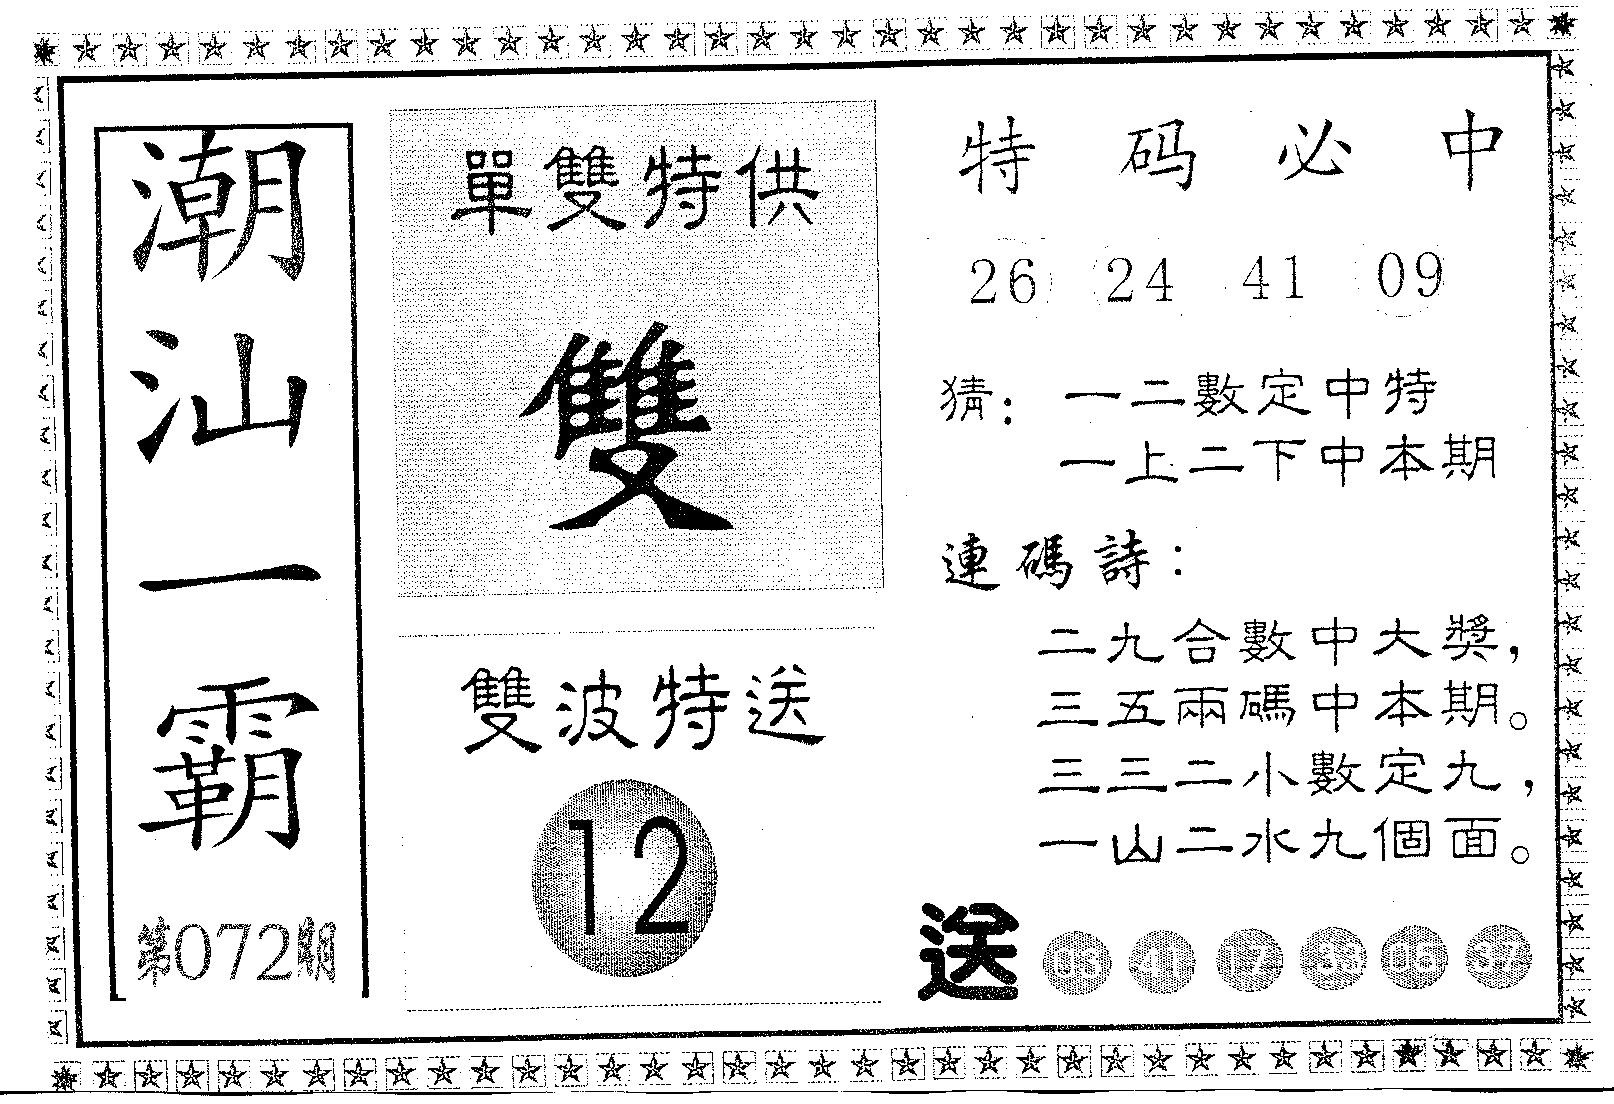 潮汕一霸
第072期
單雙特供
雙
雙波特送
12
特码必中
26 24 41 09
猜：一二數定中特
一上二下中本期
連碼詩：
二九合數中大獎，
三五兩碼中本期。
三三二小數定九，
一山二水九個面。
送 03 41 17 33 06 37